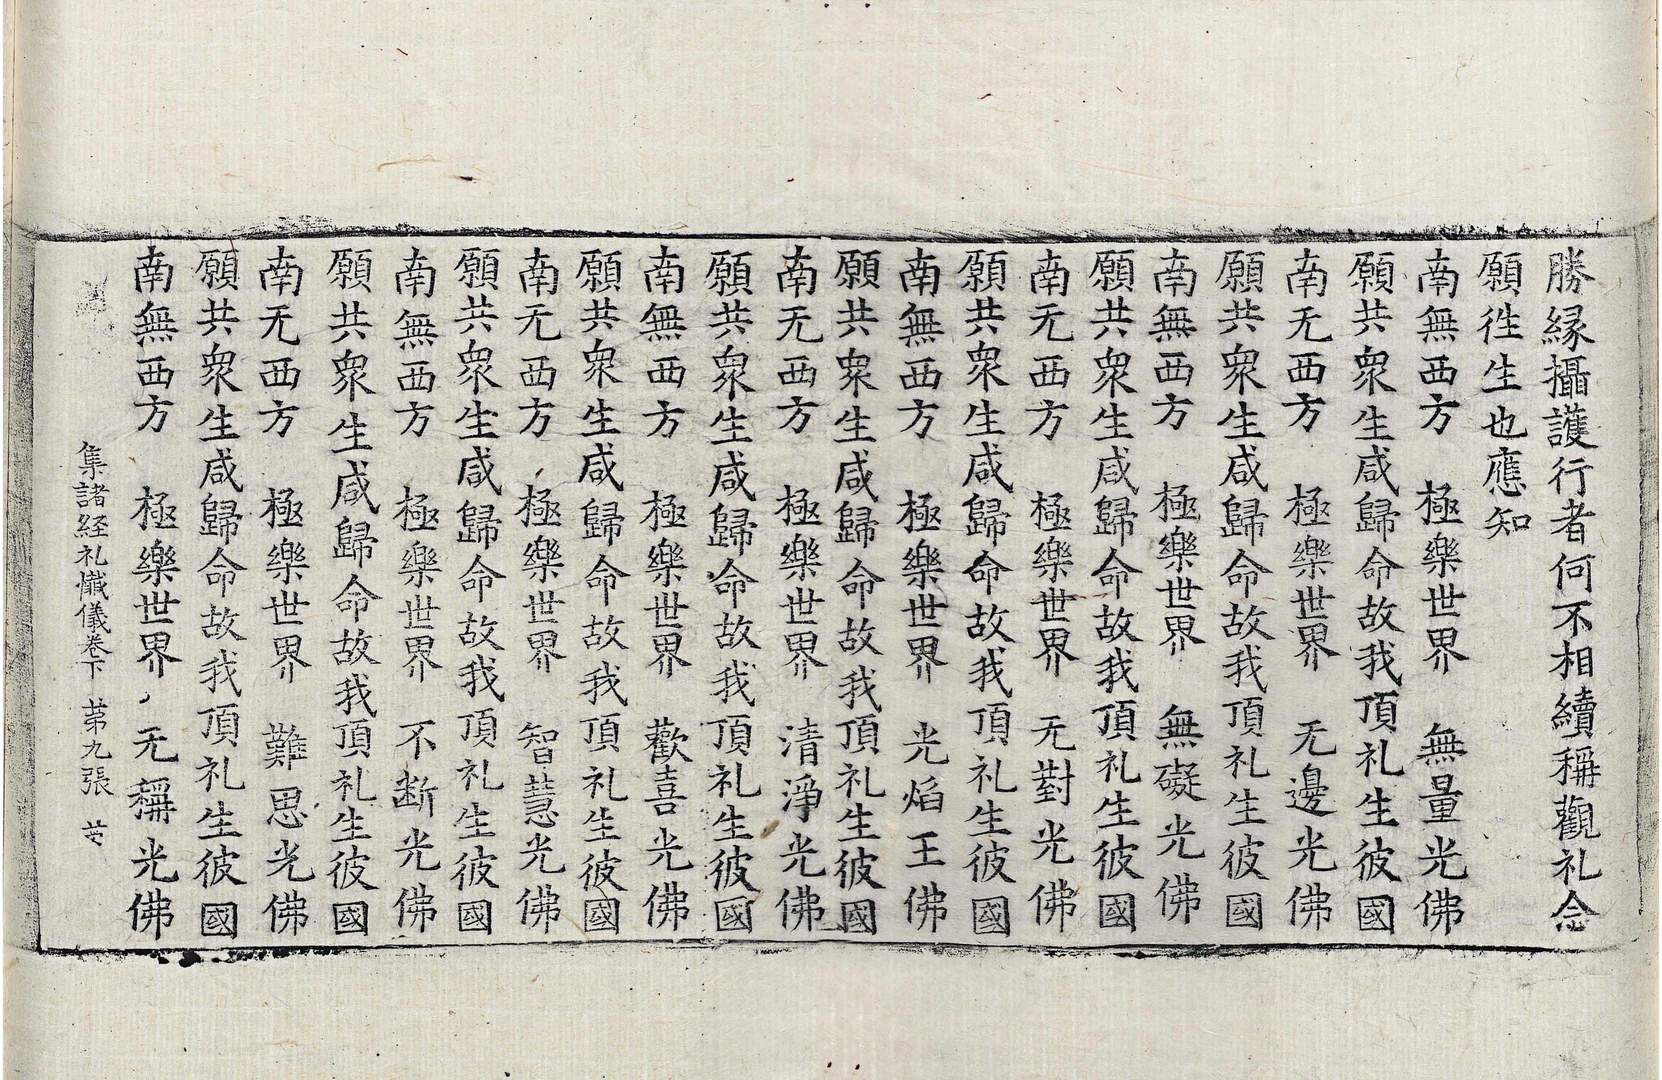 勝縁攝護行者何不相續稱觀礼念
願徃生也應知
南無西方　極樂世界　無量光佛
願共衆生咸歸命故我頂礼生彼國
南无西方　極樂世界　无邊光佛
願共衆生咸歸命故我頂礼生彼國
南無西方　極樂世界　無礙光佛
願共衆生咸歸命故我頂礼生彼國
南无西方　極樂世界　无對光佛
願共衆生咸歸命故我頂礼生彼國
南無西方　極樂世界　光焰王佛
願共衆生咸歸命故我頂礼生彼國
南无西方　極樂世界　清淨光佛
願共衆生咸歸命故我頂礼生彼國
南無西方　極樂世界　歡喜光佛
願共衆生咸歸命故我頂礼生彼國
南无西方　極樂世界　智慧光佛
願共衆生咸歸命故我頂礼生彼國
南無西方　極樂世界　不断光佛
願共衆生咸歸命故我頂礼生彼國
南无西方　極樂世界　難思光佛
願共衆生咸歸命故我頂礼生彼國
南無西方　極樂世界　无稱光佛
集諸経礼懺儀卷下　第九張